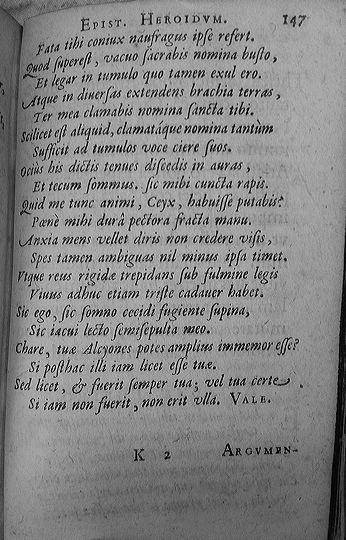 EPIST. HEROIDVM. 147
Fata tibi coniux naufragus ipſe refert.
Quod ſupereſt, vacuo ſacrabis nomina buſto,
Et legar in tumulo quo tamen exul ero.
Atque in diuerſas extendens brachia terras,
Ter mea clamabis nomina ſancta tibi.
Scilicet eſt aliquid, clamatáque nomina tantùm
Sufficit ad tumulos voce ciere ſuos.
Ociùs his dictis tenues diſcedis in auras,
Et tecum ſommus. ſic mihi cuncta rapis.
Quid me tunc animi, Ceyx, habuiſſe putabis?
Pœnè mihi durâ pectora fracta manu.
Anxia mens vellet diris non credere viſis,
Spes tamen ambiguas nil minus ipſa timet.
Vtque reus rigidæ trepidans ſub fulmine legis
Viuus adhuc etiam triſte cadauer habet.
Sic ego, ſic ſomno cecidi fugiente ſupina,
Sic iacui lecto ſemiſepulta meo.
Chare, tuæ Alcyones potes amplius immemor eſſe?
Si poſthac illi iam licet eſſe tuæ.
Sed licet, & fuerit ſemper tua; vel tua certe
Si iam non fuerit, non erit vlla. VALE.
K 2 ARGVMEN-